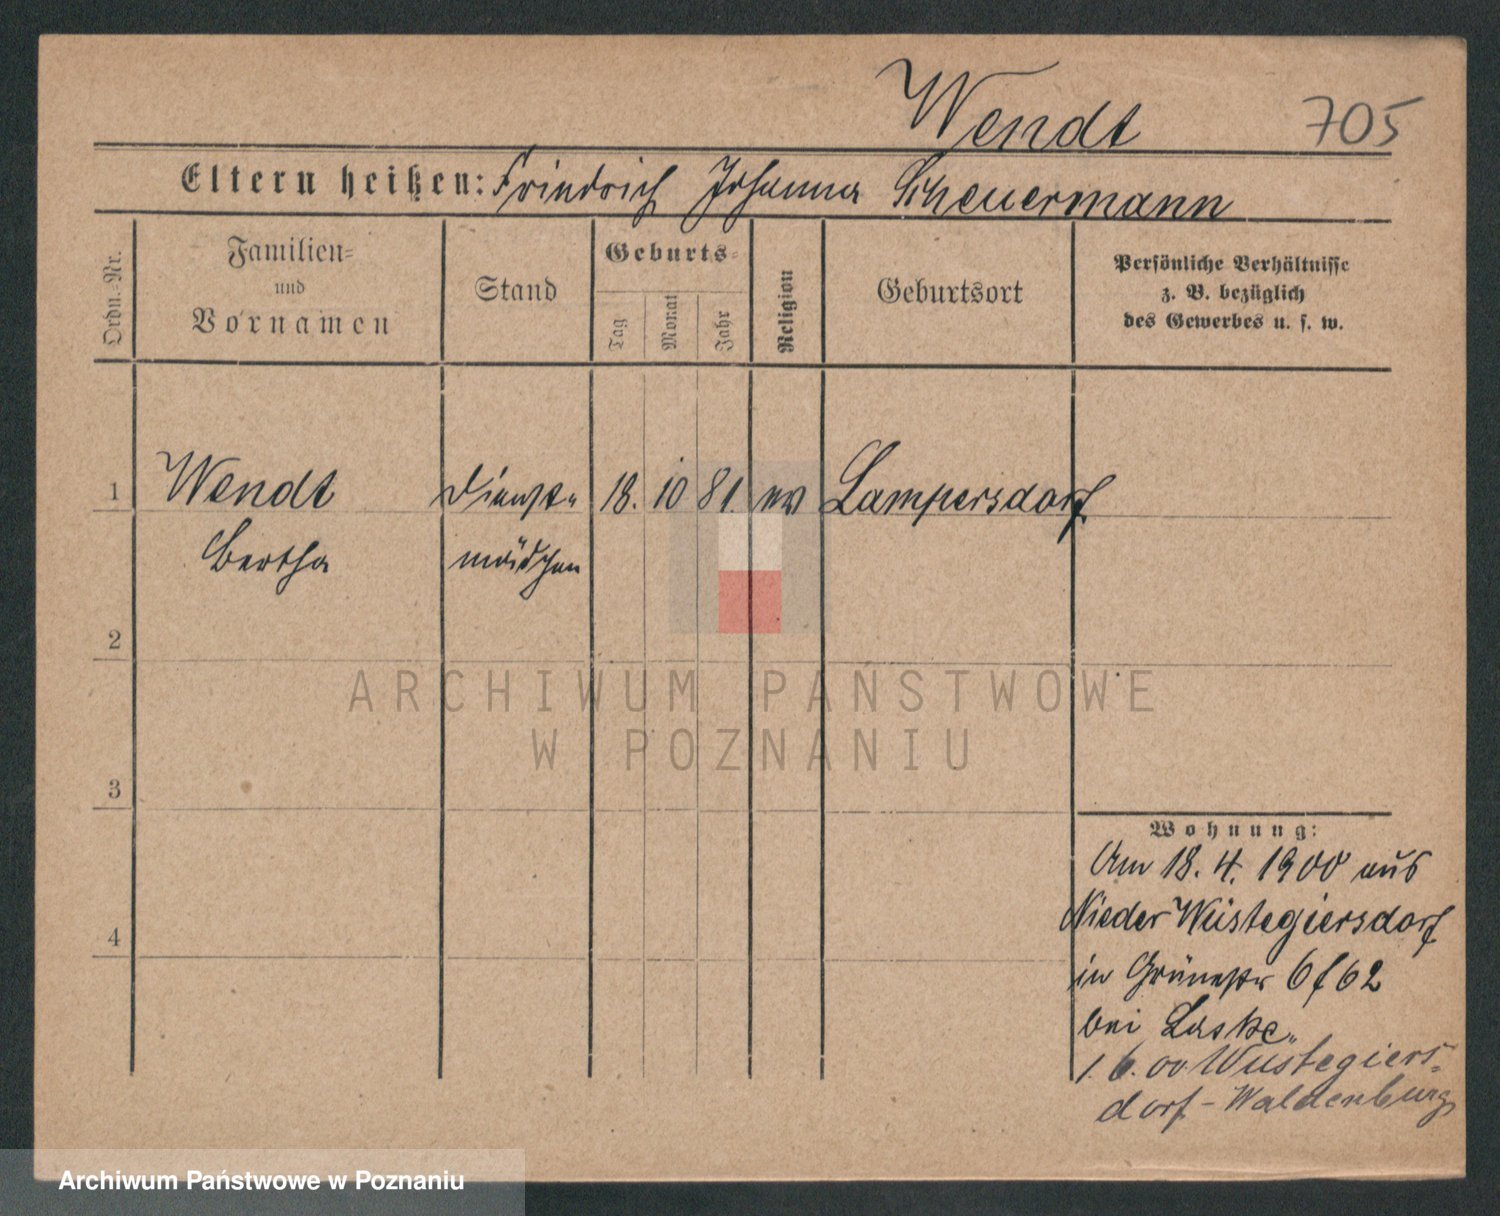 Wendt 705
Eltern heißen: Friedrich Johanna Scheuermann
Ordn.-Nr. Familien- und Vornamen Stand Geburts- Tag Monat Jahr Religion Geburtsort Persönliche Verhältnisse z. B. bezüglich des Gewerbes u. s. w.
1 Wendt Dienst- 18. 10 81. ev Lampersdorf
Bertha mädchen
2
ARCHIWUM PAŃSTWOWE
W POZNANIU
3
Wohnung:
Am 18. 4. 1900 aus
Nieder Wüstegiersdorf
4
in Grünestr 6 f 62
bei Laske
1. 6. 00 Wüstegiers-
dorf - Waldenburg
Archiwum Państwowe w Poznaniu